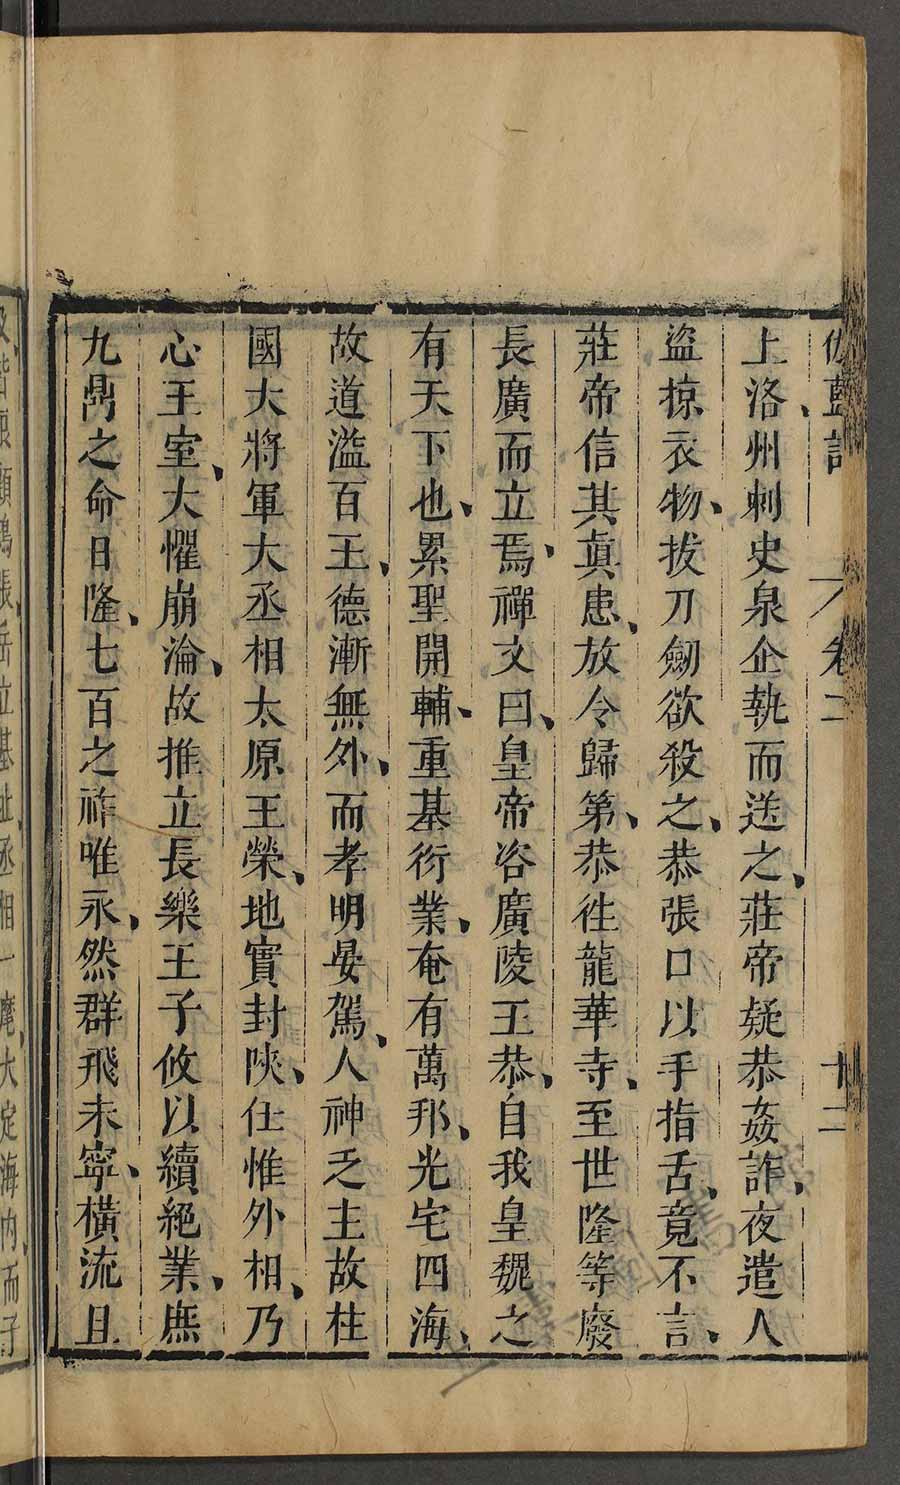 伽藍記 卷二 十二
上洛州刺史泉企執而送之、莊帝疑恭姦詐、夜遣人
盜掠衣物、拔刀劒欲殺之、恭張口以手指舌、竟不言、
莊帝信其眞患、放令歸第、恭徃龍華寺、至世隆等廢
長廣而立焉、禪文曰、皇帝咨廣陵王恭、自我皇魏之
有天下也、累聖開輔、重基衍業、奄有萬邦、光宅四海、
故道溢百王、德漸無外、而孝明晏駕、人神乏主故柱
國大將軍大丞相太原王榮、地實封陝、仕惟外相、乃
心王室、大懼崩淪、故推立長樂王子攸以續絕業、庶
九鼎之命日隆、七百之祚唯永、然群飛未寧、橫流且